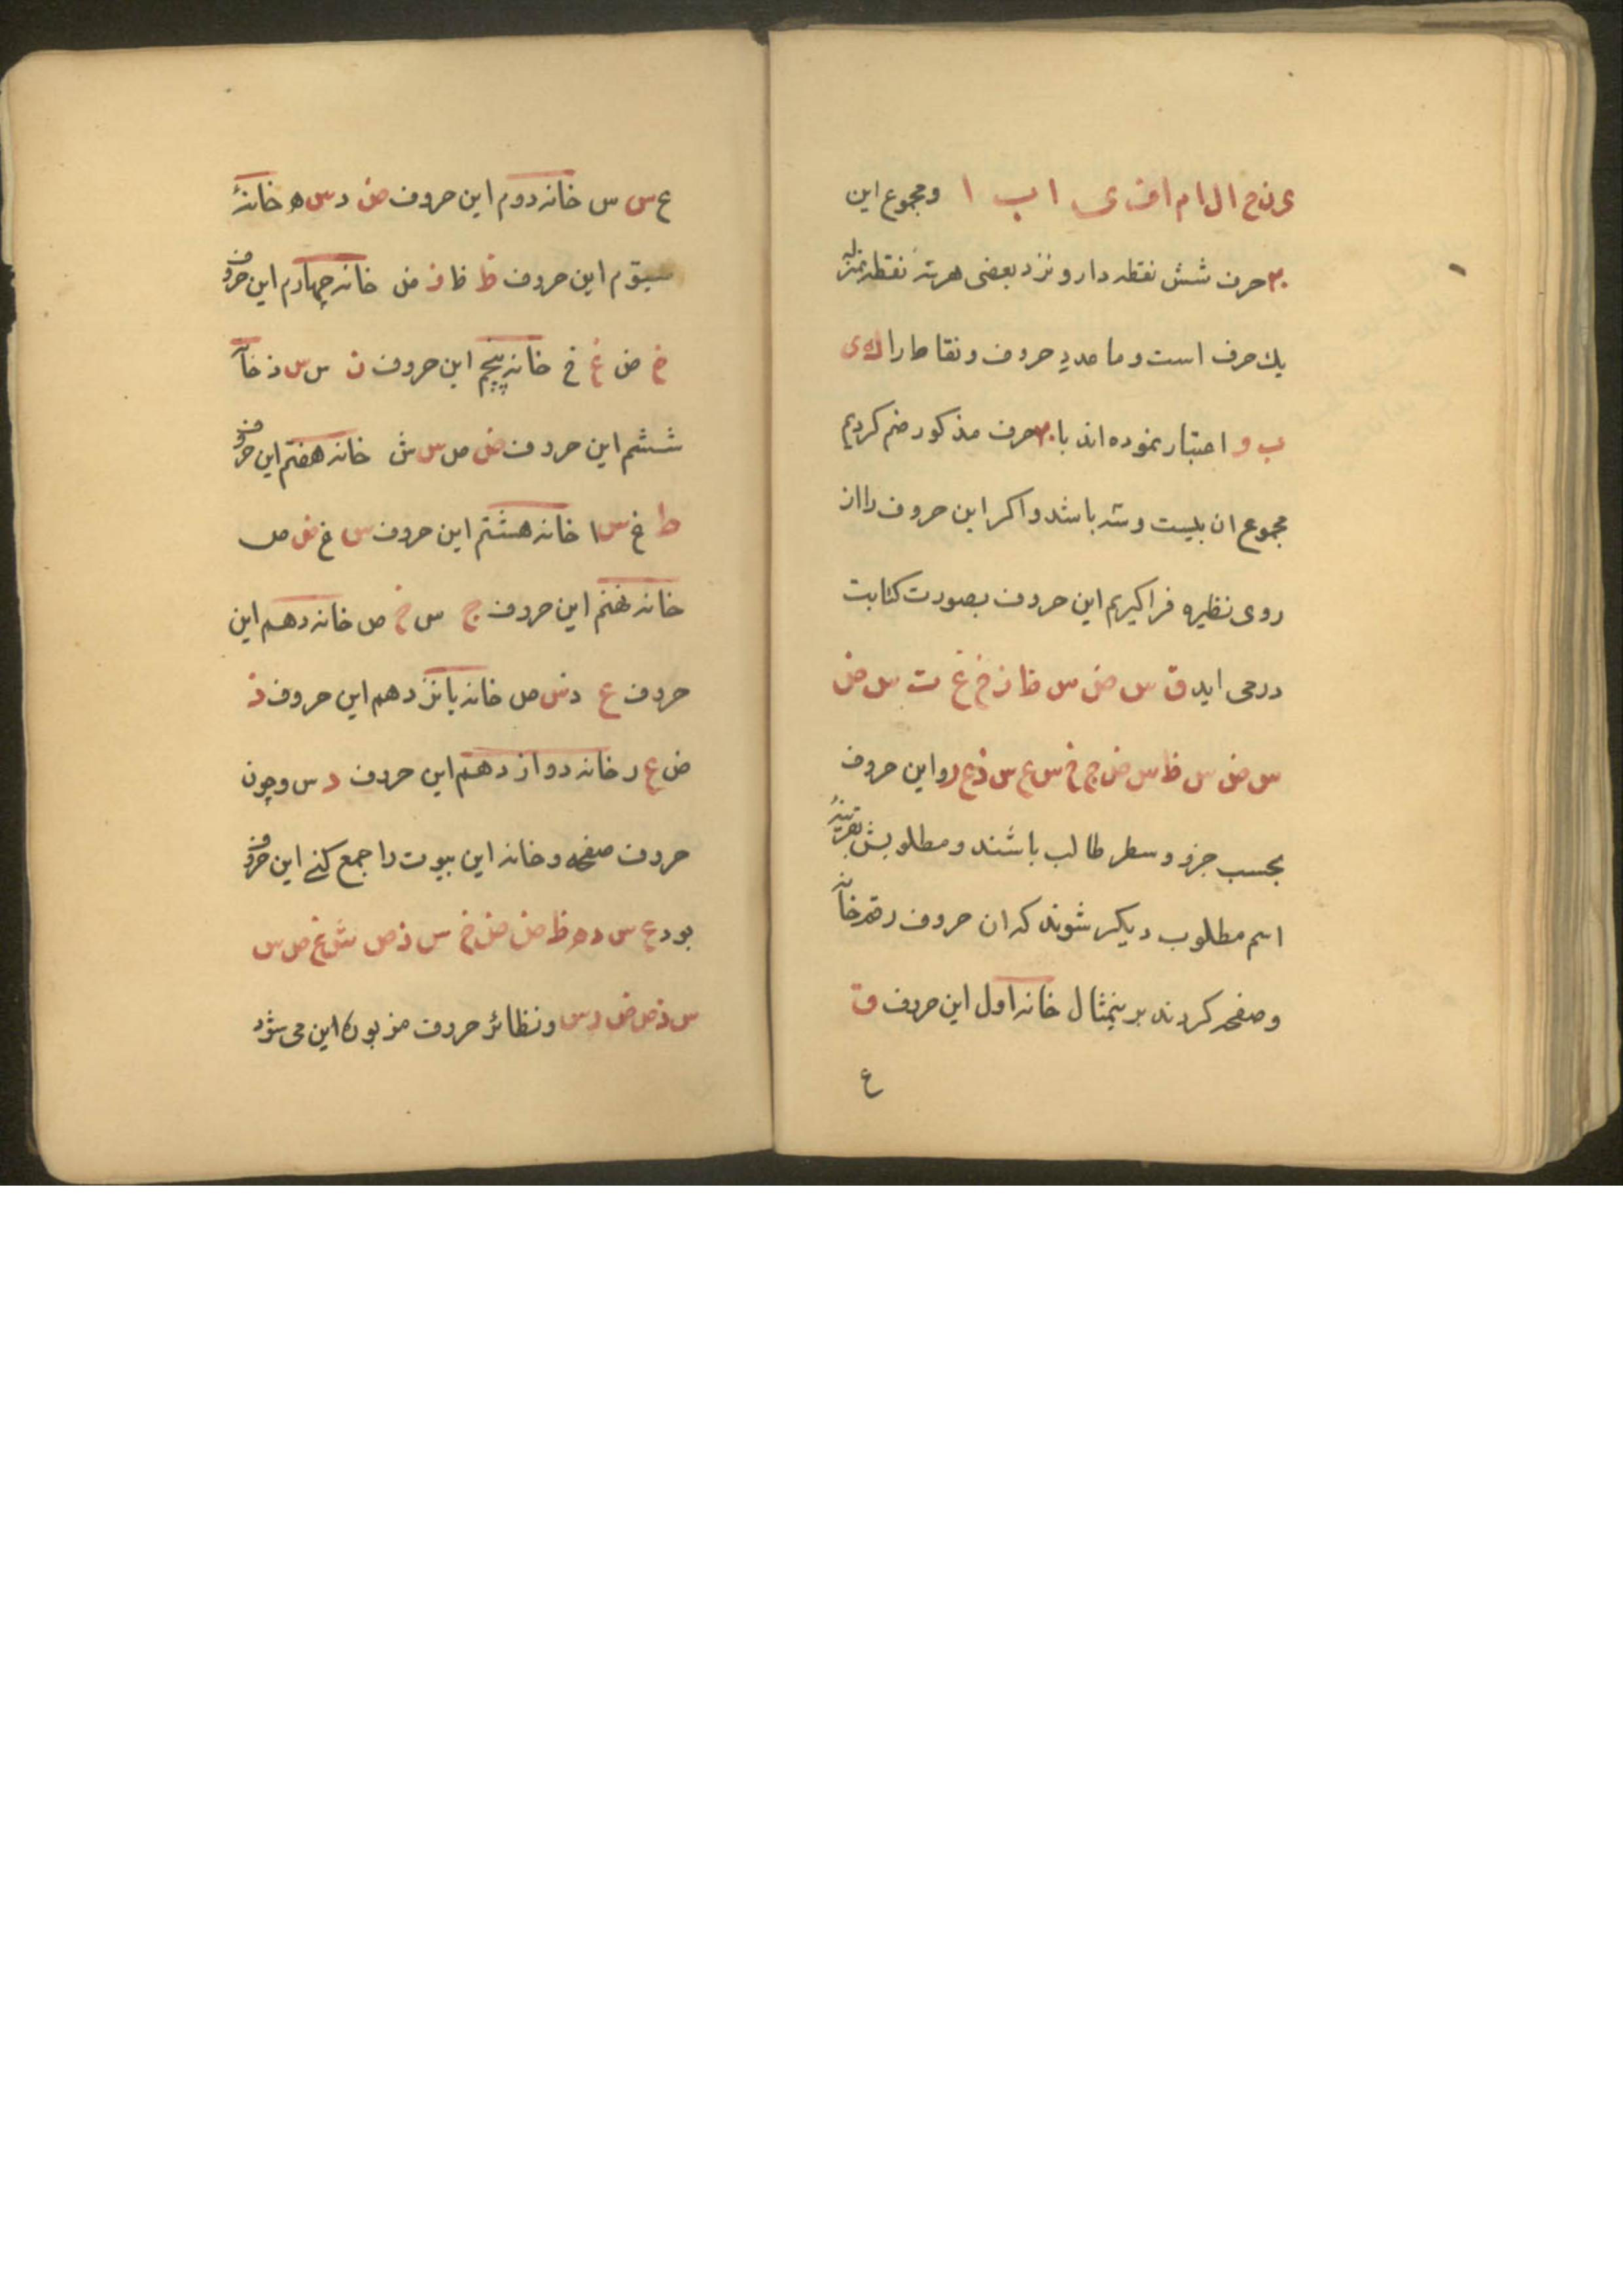 ی ن ح ا ل ا م ا ف ی ا ب ا ومجموع این
۲۰ حرف شش نقطه دارو نزد بعضی هر سه نقطه بمنزلهٔ
یك حرف است وما عدد حروف ونقاط را ك ه ی
ب و اعتبار نموده اند با ۲۰ حرف مذکور ضم کردیم
مجموع ان بیست وسه باشد واکر این حروف را از
روی نظیره فراکیریم این حروف بصورت کتابت
درمی اید ق س ض س ظ ز خ غ ت س ض
س ض س ظ س ض ج خ س ع س ذ ع ر واین حروف
بحسب جزو وسطر طالب باشند ومطلوبش
اسم مطلوب دیکر شوند که ان حروف رقم خانه
وصفحه کردند برینمثال خانه اول این حروف ق
ع
ع س س خانه دوم این حروف ض د س ه خانهٔ
سیوم این حروف ظ ظ ز ض خانه چهارم این حروف
خ ض غ خ خانه پنجم این حروف ت س س ذ خانه
ششم این حروف ض ص س ش خانه هفتم این حروف
ط غ س ا خانه هشتم این حروف س غ ض ص
خانه نهم این حروف ج س خ ص خانه دهم این
حروف ع د س ص خانه یانزدهم این حروف ذ
ض ع ر خانه دوازدهم این حروف د س وچون
حروف صفحه وخانه این بیوت را جمع کنی این حروف
بود ع س د ه ظ ض ض خ س ذ ص ش غ ص س
س ذ ص ض ر س ونظائر حروف مزبوره این می شود